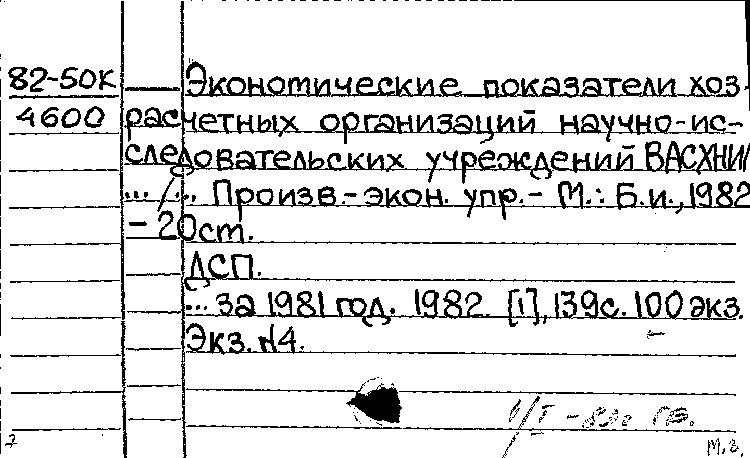 82-50К Экономические показатели хоз-
4600 расчетных организаций научно-ис-
следовательских учреждений ВАСХНИЛ
... / ... Произв.-экон. упр.- М.: Б.и., 1982
- 20ст.
ДСП.
... за 1981 год. 1982. [1], 139с. 100 экз.
Экз. N4.
М.З.